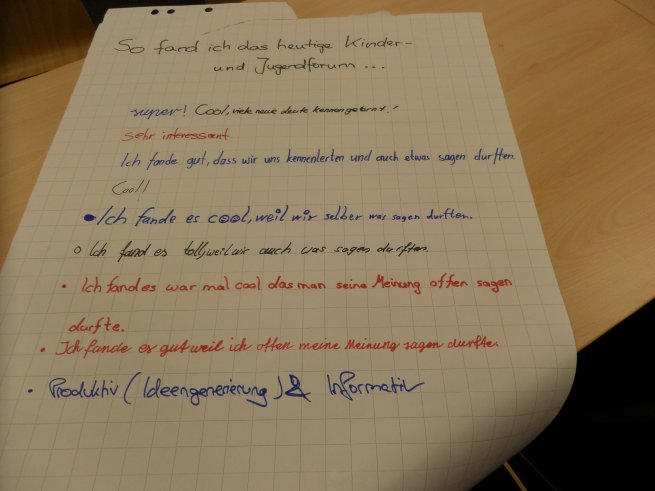 So fand ich das heutige Kinder-
und Jugendforum ...
super! Cool, viele neue Leute kennengelernt!
Sehr interessant
Ich fande gut, dass wir uns kennenlerten und auch etwas sagen durften.
Cool!
Ich fande es cool, weil wir selber was sagen durften.
Ich fand es toll, weil wir auch was sagen durften.
• Ich fand es war mal cool das man seine Meinung offen sagen
durfte.
• Ich fande es gut weil ich offen meine Meinung sagen durfte.
• Produktiv (Ideengenerierung) & Informativ